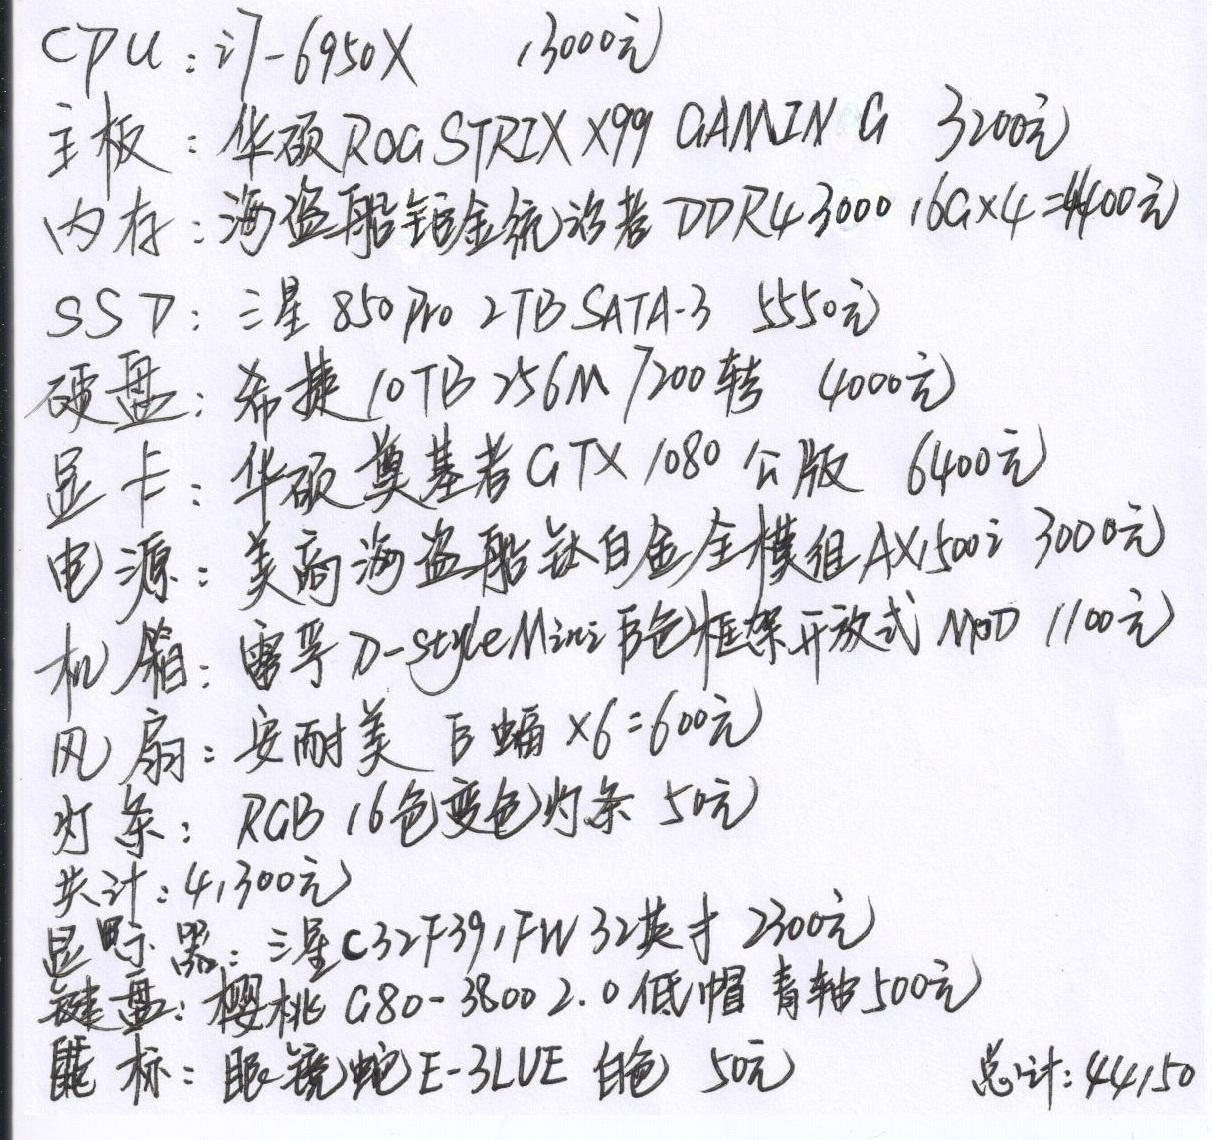 CPU：i7-6950X 13000元
主板：华硕ROG STRIX X99 GAMING 3200元
内存：海盗船铂金统治者 DDR4 3000 16G×4=4400元
SSD：三星 850 Pro 2TB SATA-3 5550元
硬盘：希捷 10TB 256M 7200转 4000元
显卡：华硕奠基者 GTX 1080 公版 6400元
电源：美商海盗船钛白金全模组 AX1500i 3000元
机箱：雷孚 D-style Mini 白色框架开放式 MOD 1100元
风扇：安耐美 巨蝠 ×6=600元
灯条：RGB 16色变色灯条 50元
共计：41300元
显示器：三星C32F391FW 32英寸 2300元
键盘：樱桃 G80-3800 2.0 低帽 青轴 500元
鼠标：眼镜蛇 E-3LUE 白色 50元 总计：44150